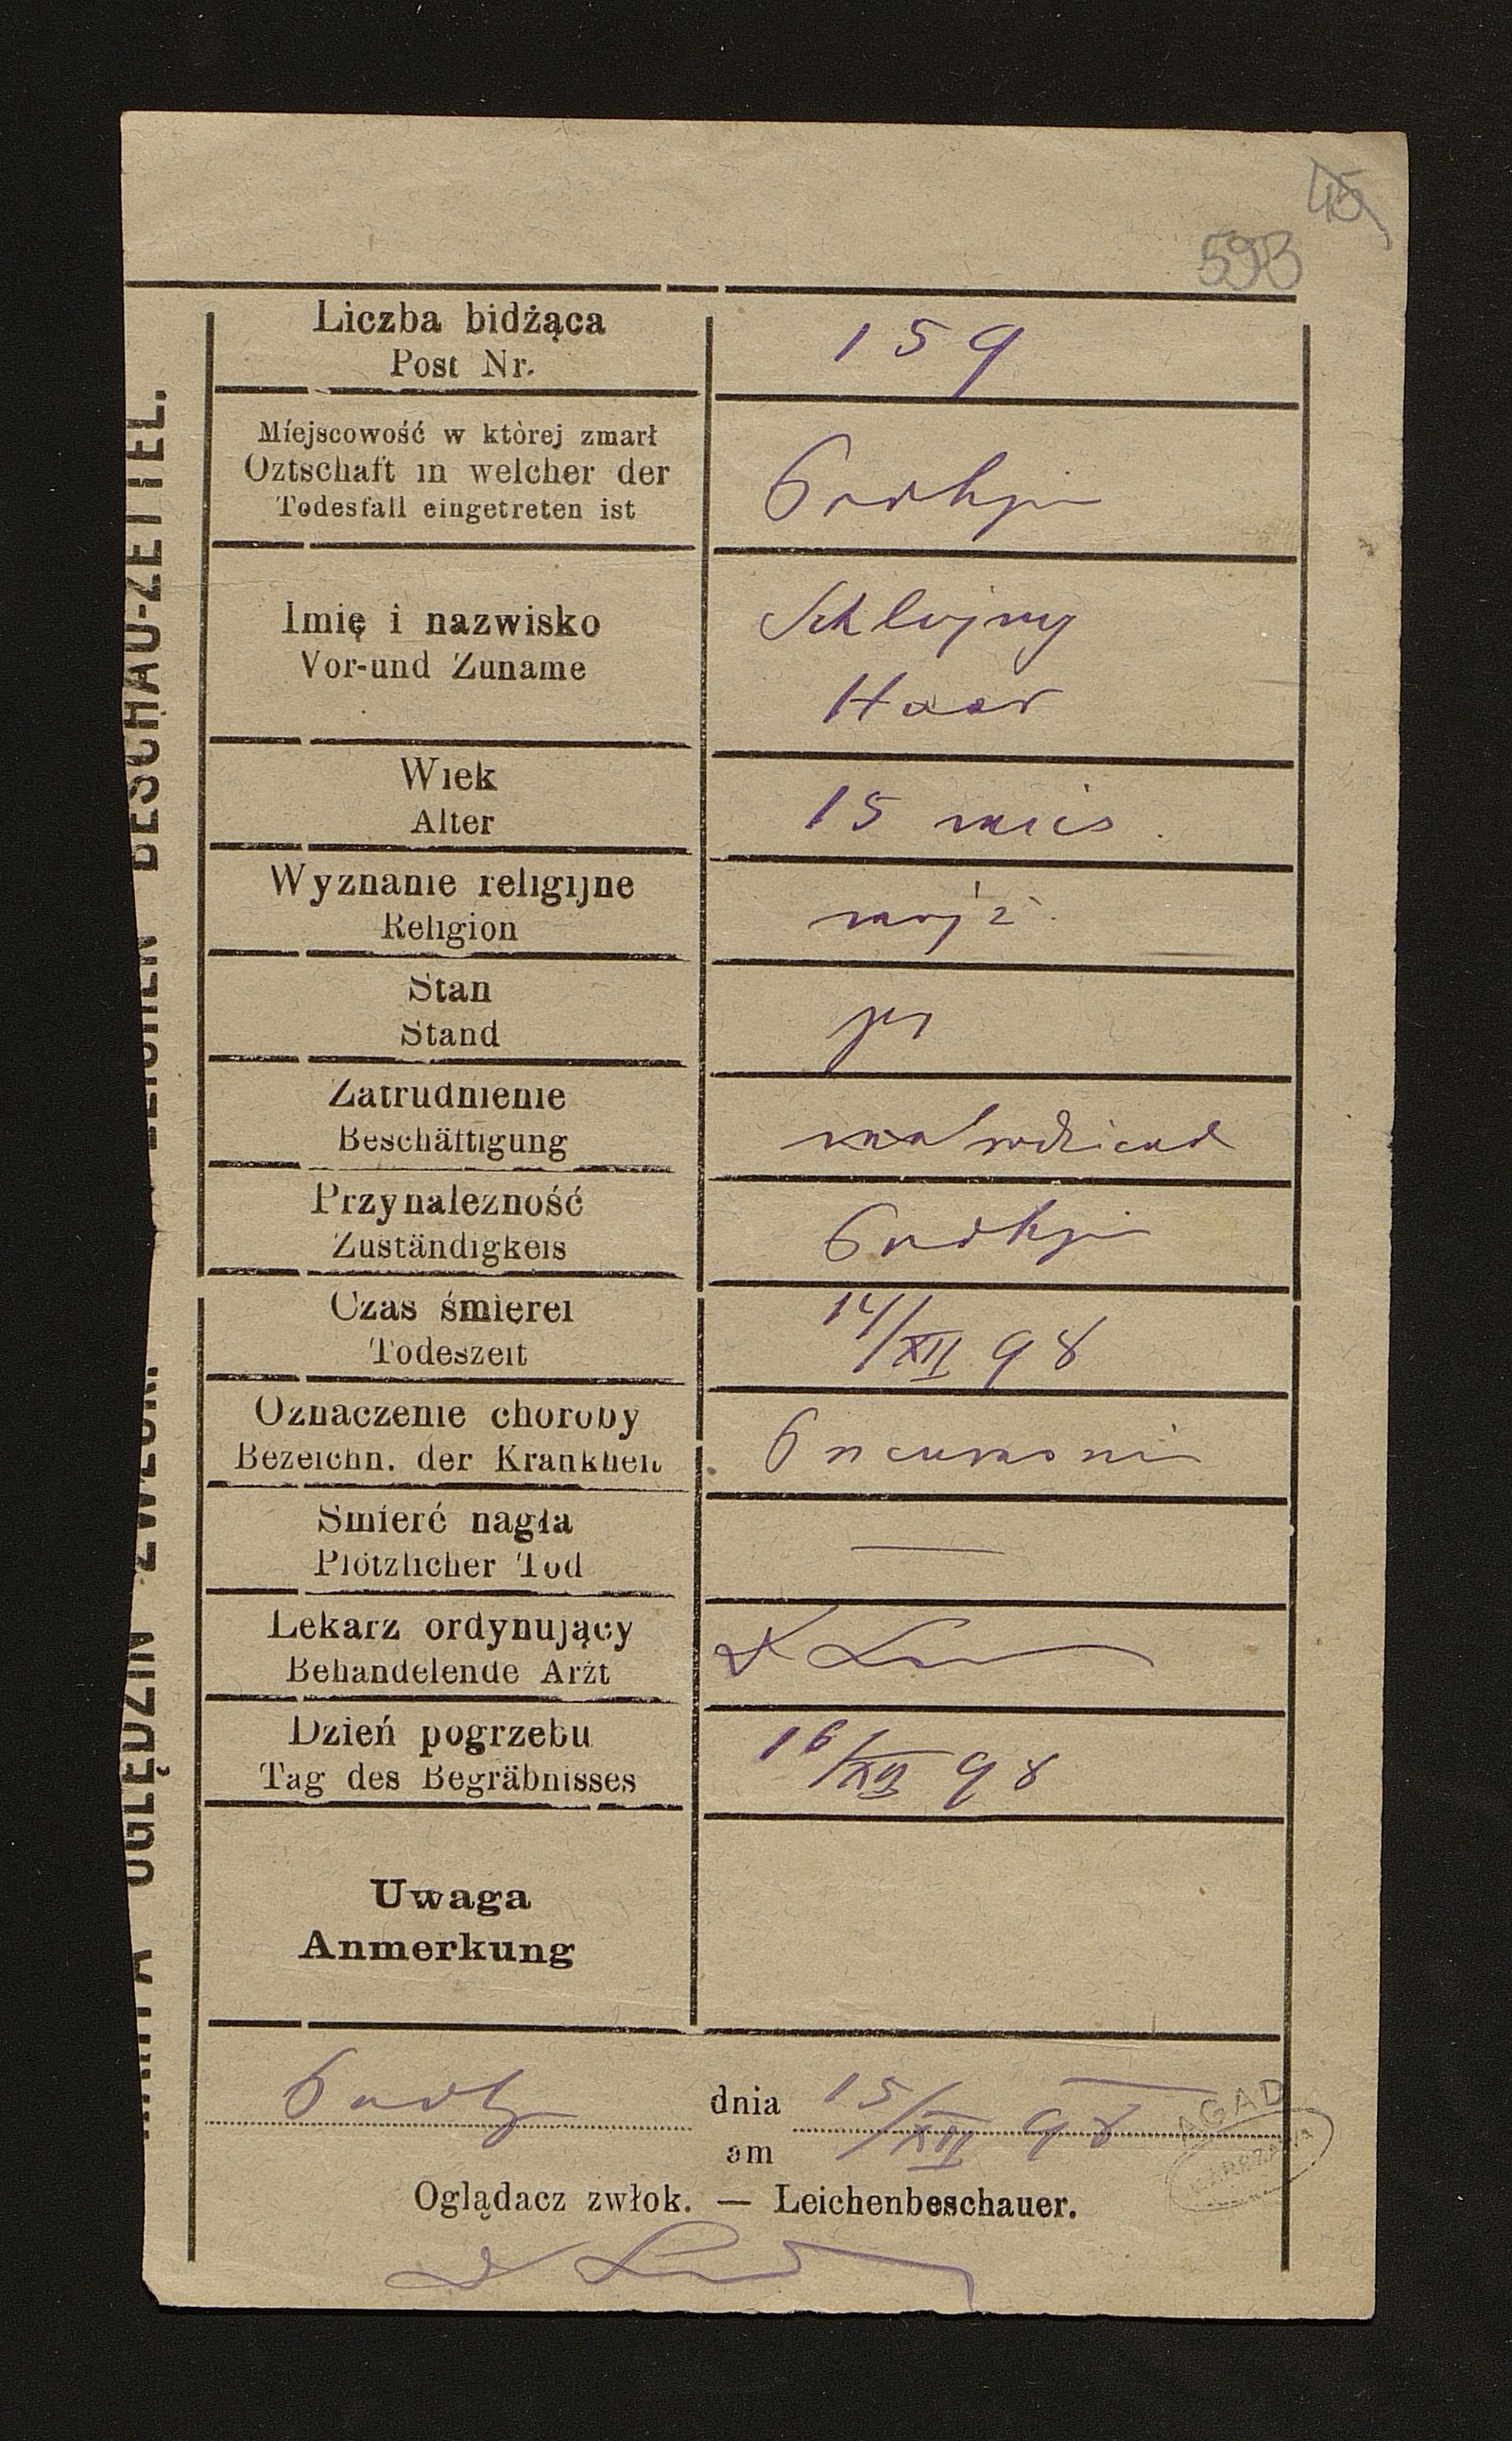 45
593
KARTA OGLĘDZIN ZWŁOK. LEICHEN BESCHAU-ZETTEL.
Liczba bidżąca
Post Nr.
159
Míejscowość w ktòrej zmarł
Oztschaft in welcher der
Todesfall eingetreten ist
Imię i nazwisko
Vor-und Zuname
Haar
Wiek
Alter
15 mies.
Wyznanie religijne
Religion
mojż.
Stan
Stand
Zatrudnienie
Beschäftigung
Przynalezność
Zuständigkeis
Czas śmierei
Todeszeit
14/XII 98
Oznaczenie choroby
Bezeichn. der Krankheit
Pneumonia
Smierć nagła
Plötzlicher Tod
—
Lekarz ordynujący
Behandelende Arżt
Dzień pogrzebu
Tag des Begräbnisses
16/XII 98
Uwaga
Anmerkung
dnia 15/XII 98
am
AGAD
WARSZAWA
Oglądacz zwłok. — Leichenbeschauer.